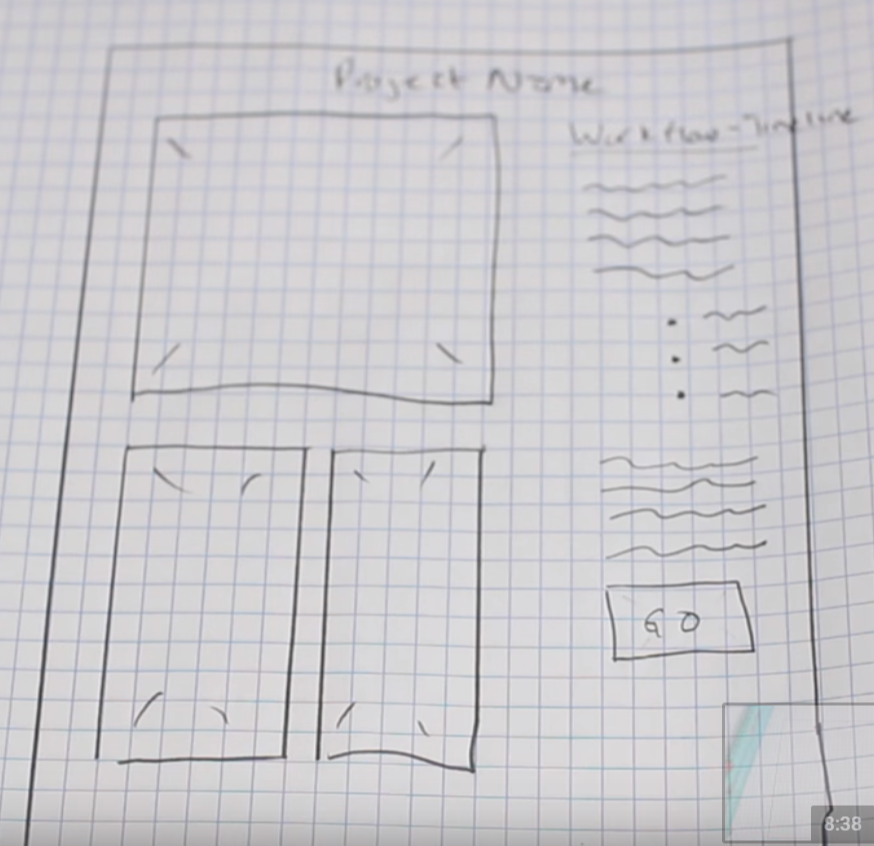 Project Name
Workflow-Timeline
GO
8:38